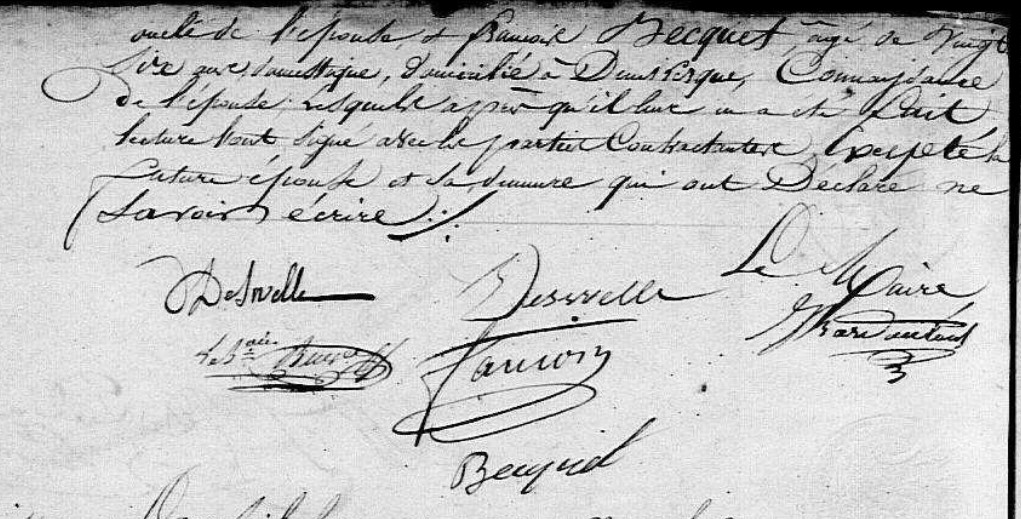 oncle de l'épouse, et francois Becquet, agé de Vingt
Six ans, domestique, domicilié à Dunkerque, Connaissance
de l'épouse; Lesquels après qu'il leur en a été fait
lecture l'ont signé avec les parties Contractantes, Excepté la
future épouse et sa demeure qui ont Déclaré ne
Savoir écrire ./.
DeSwelle Deswelle Le Maire
Becquet